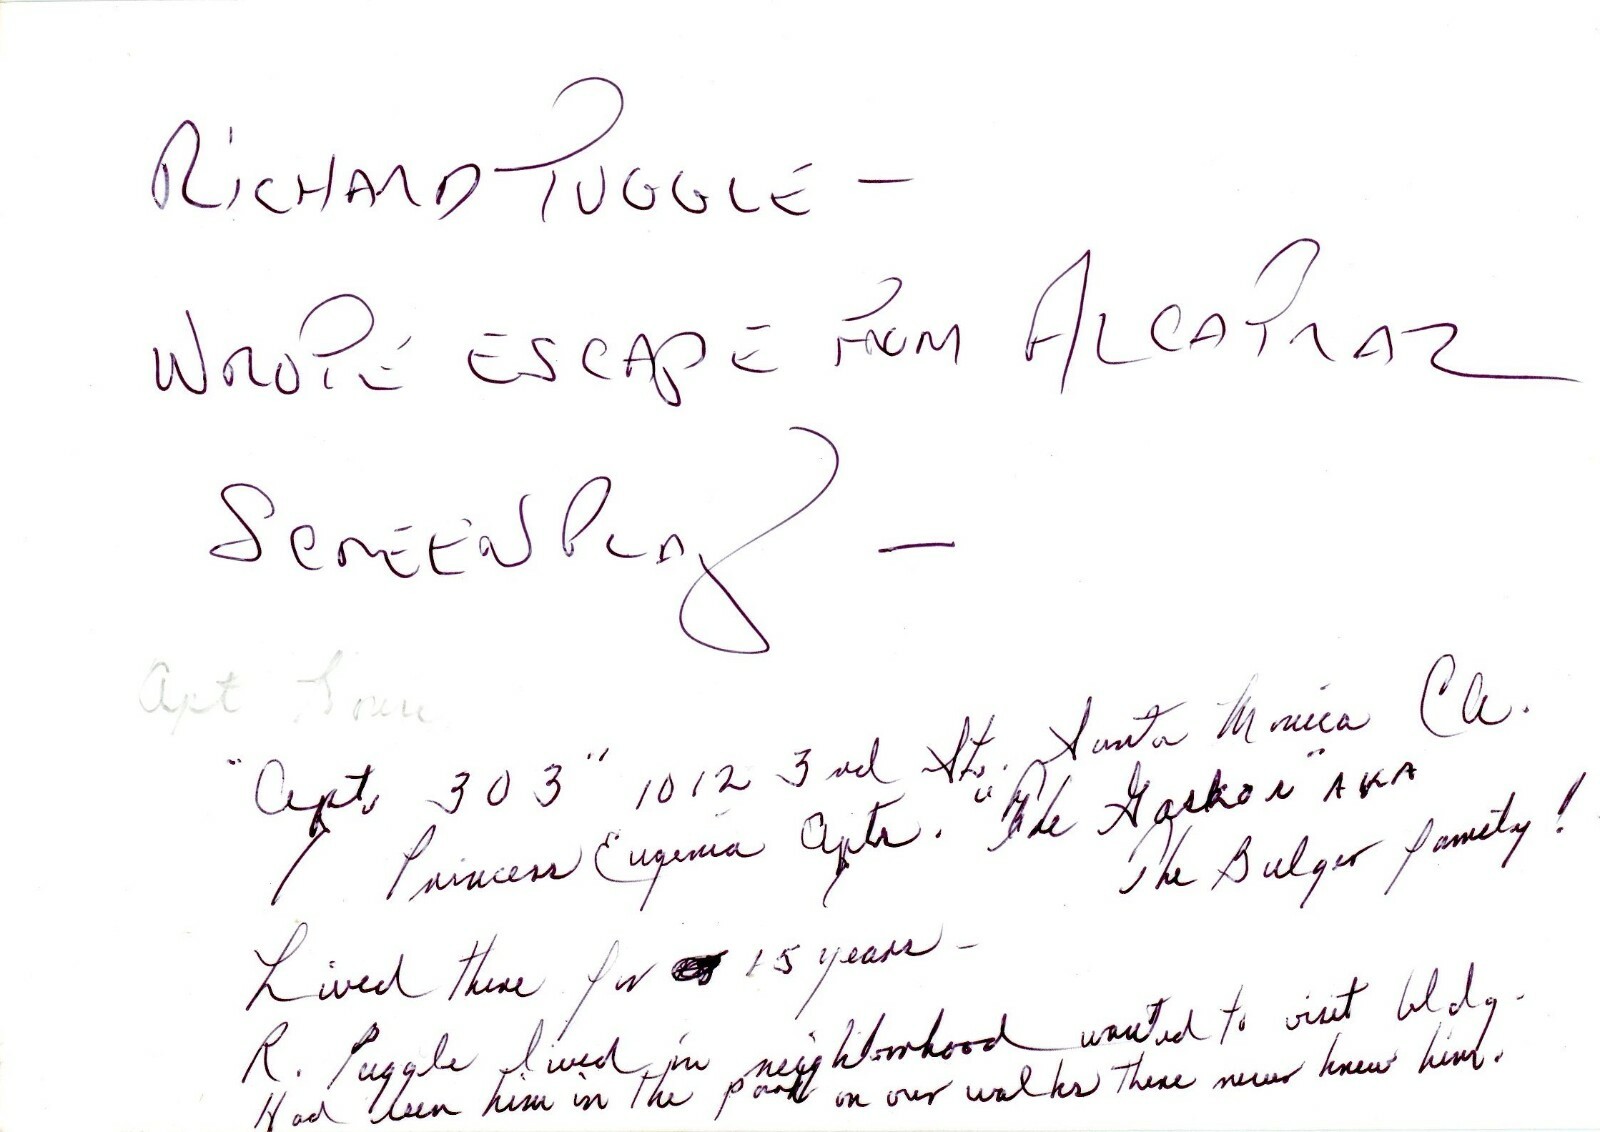 RICHARD TUGGLE —
WROTE ESCAPE FROM ALCATRAZ
SCREENPLAY —
Apt
"Apt. 303" 1012 3rd St. Santa Monica CA.
Princess Eugenia Apts. "The Gaskos" AKA
The Bulger family!
Lived there for 15 years -
R. Puggle lived in neighborhood wanted to visit bldg.
Had seen him in the park on our walks there never knew him.